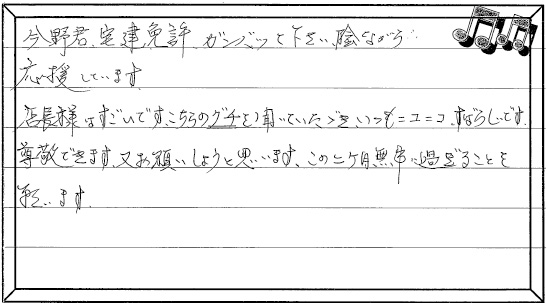 今野君、宅建免許、ガンバッて下さい、陰ながら
応援しています。
店長様はすごいです、こちらのグチを聞いていただき、いつもニコニコ、すばらしいです。
尊敬できます、又お願いしようと思います、この二ケ月無事に過ぎることを
祈います。